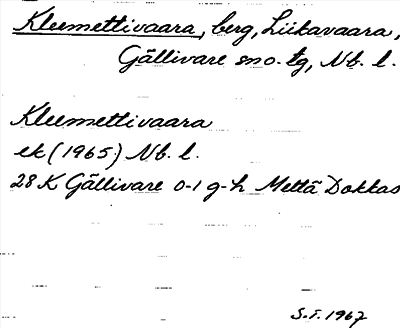 Kleemettivaara, berg, Liikavaara,
Gällivare sno. tg, Nb. l.
Kleemettivaara
ek (1965) Nb. l.
28 K Gällivare 0-1 g-h Mettä Dokkas
S.F. 1967